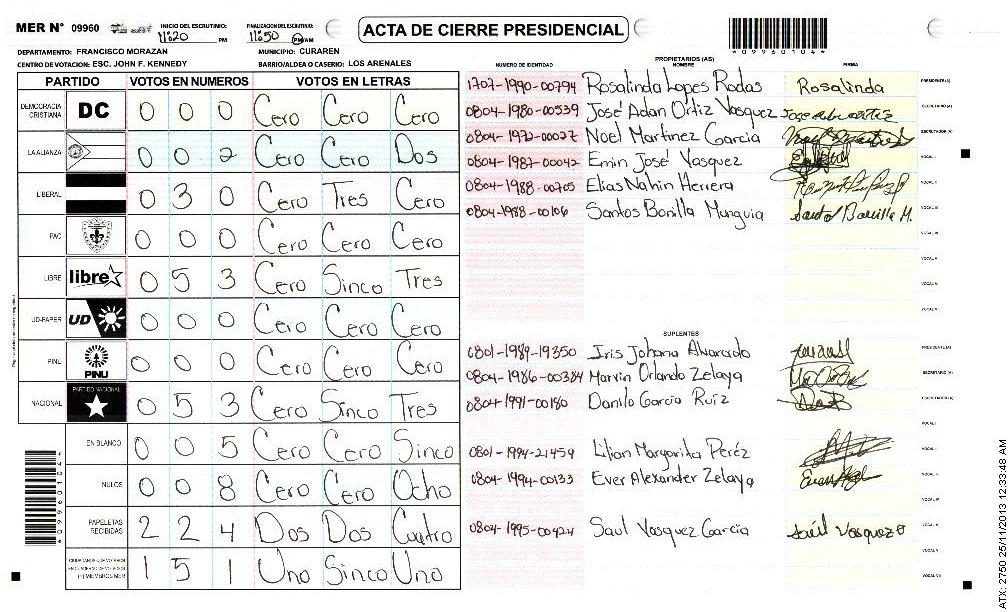 MER N° 09960 INICIO DEL ESCRUTINIO: 11:20 PM FINALIZACION DEL ESCRUTINIO: 11:50 PM/AM ACTA DE CIERRE PRESIDENCIAL *09960104*
DEPARTAMENTO: FRANCISCO MORAZAN MUNICIPIO: CURAREN
CENTRO DE VOTACION: ESC. JOHN F. KENNEDY BARRIO/ALDEA O CASERIO: LOS ARENALES
PARTIDO VOTOS EN NUMEROS VOTOS EN LETRAS
DEMOCRACIA CRISTIANA DC 0 0 0 Cero Cero Cero
LA ALIANZA 0 0 2 Cero Cero Dos
LIBERAL 0 3 0 Cero Tres Cero
PAC 0 0 0 Cero Cero Cero
LIBRE libre 0 5 3 Cero Sinco Tres
UD-FAPER UD 0 0 0 Cero Cero Cero
PINU PINU 0 0 0 Cero Cero Cero
NACIONAL PARTIDO NACIONAL 0 5 3 Cero Sinco Tres
EN BLANCO 0 0 5 Cero Cero Sinco
NULOS 0 0 8 Cero Cero Ocho
PAPELETAS RECIBIDAS 2 2 4 Dos Dos Cuatro
1 5 1 Uno Sinco Uno
*09960104*
PROPIETARIOS (AS)
NUMERO DE IDENTIDAD NOMBRE FIRMA
1707-1990-00794 Rosalinda Lopes Rodas Rosalinda PRESIDENTE (A)
0804-1980-00539 José Adan Ortiz Vasquez SECRETARIO (A)
0804-1972-00027 Noel Martinez Garcia ESCRUTADOR (A)
0804-1987-00042 Emin José Vasquez VOCAL I
0804-1988-00705 Elias Nahin Herrera VOCAL II
0804-1988-00106 Santos Bonilla Munguia Santos Bonilla M. VOCAL III
SUPLENTES
0801-1989-19350 Iris Johana Alvarado PRESIDENTE (A)
0804-1986-00384 Marvin Orlando Zelaya SECRETARIO (A)
0804-1991-00180 Danilo Garcia Ruiz ESCRUTADOR (A)
0801-1994-21459 Lilian Margarita Peréz
0804-1994-00133 Ever Alexander Zelaya
0804-1995-00424 Saul Vasquez Garcia Saúl Vasquez
ATX: 2750 25/11/2013 12:33:48 AM